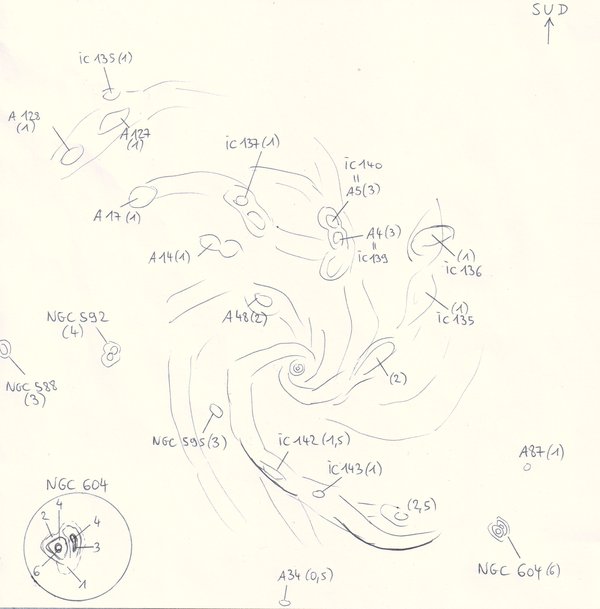 SUD
ic 135 (1)
A 128
(1)
A 127
(1)
ic 137 (1)
ic 140
=
A5 (3)
A 17 (1)
A4 (3)
=
ic 139
A 14 (1)
(1)
ic 136
(1)
ic 135
A 48 (2)
NGC 592
(4)
NGC 588
(3)
(2)
NGC 595 (3)
ic 142 (1,5)
ic 143 (1)
A 87 (1)
(2,5)
NGC 604
4
2
4
3
6
1
NGC 604 (6)
A 34 (0,5)